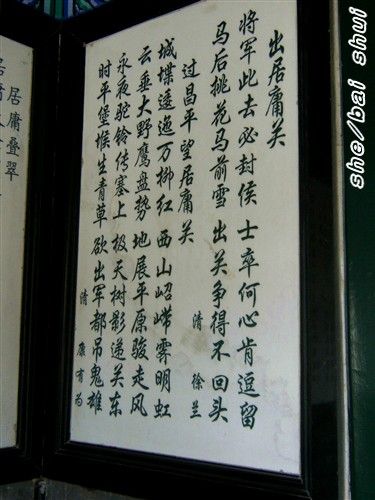 出居庸关
将军此去必封侯 士卒何心肯逗留
马后桃花马前雪 出关争得不回头
清 徐兰
过昌平望居庸关
城堞逶迤万柳红 西山岧嵽雾明虹
云垂大野鹰盘势 地展平原骏走风
永夜驼铃传塞上 极天树影递关东
时平堡堠生青草 欲出军都吊鬼雄
清 康有为
居庸叠翠
she/bai shui